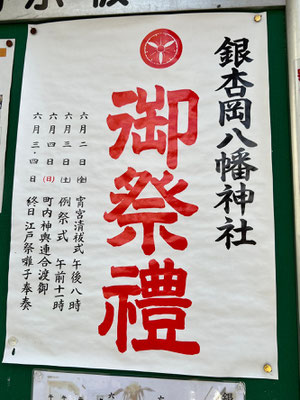 水板
銀杏岡八幡神社
御祭禮
六月二日(金) 宵宮清祓式 午後八時
六月三日(土) 例祭式 午前十一時
六月四日(日) 町内神輿連合渡御
六月三・四日 終日 江戸祭囃子奉奏
銀